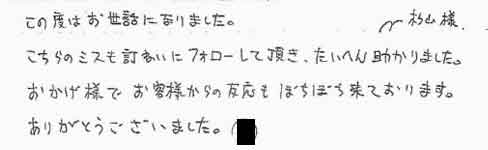 この度はお世話になりました。
杉山様
こちらのミスも丁ねいにフォローして頂き、たいへん助かりました。
おかげ様でお客様からの反応もぼちぼち来ております。
ありがとうございました。